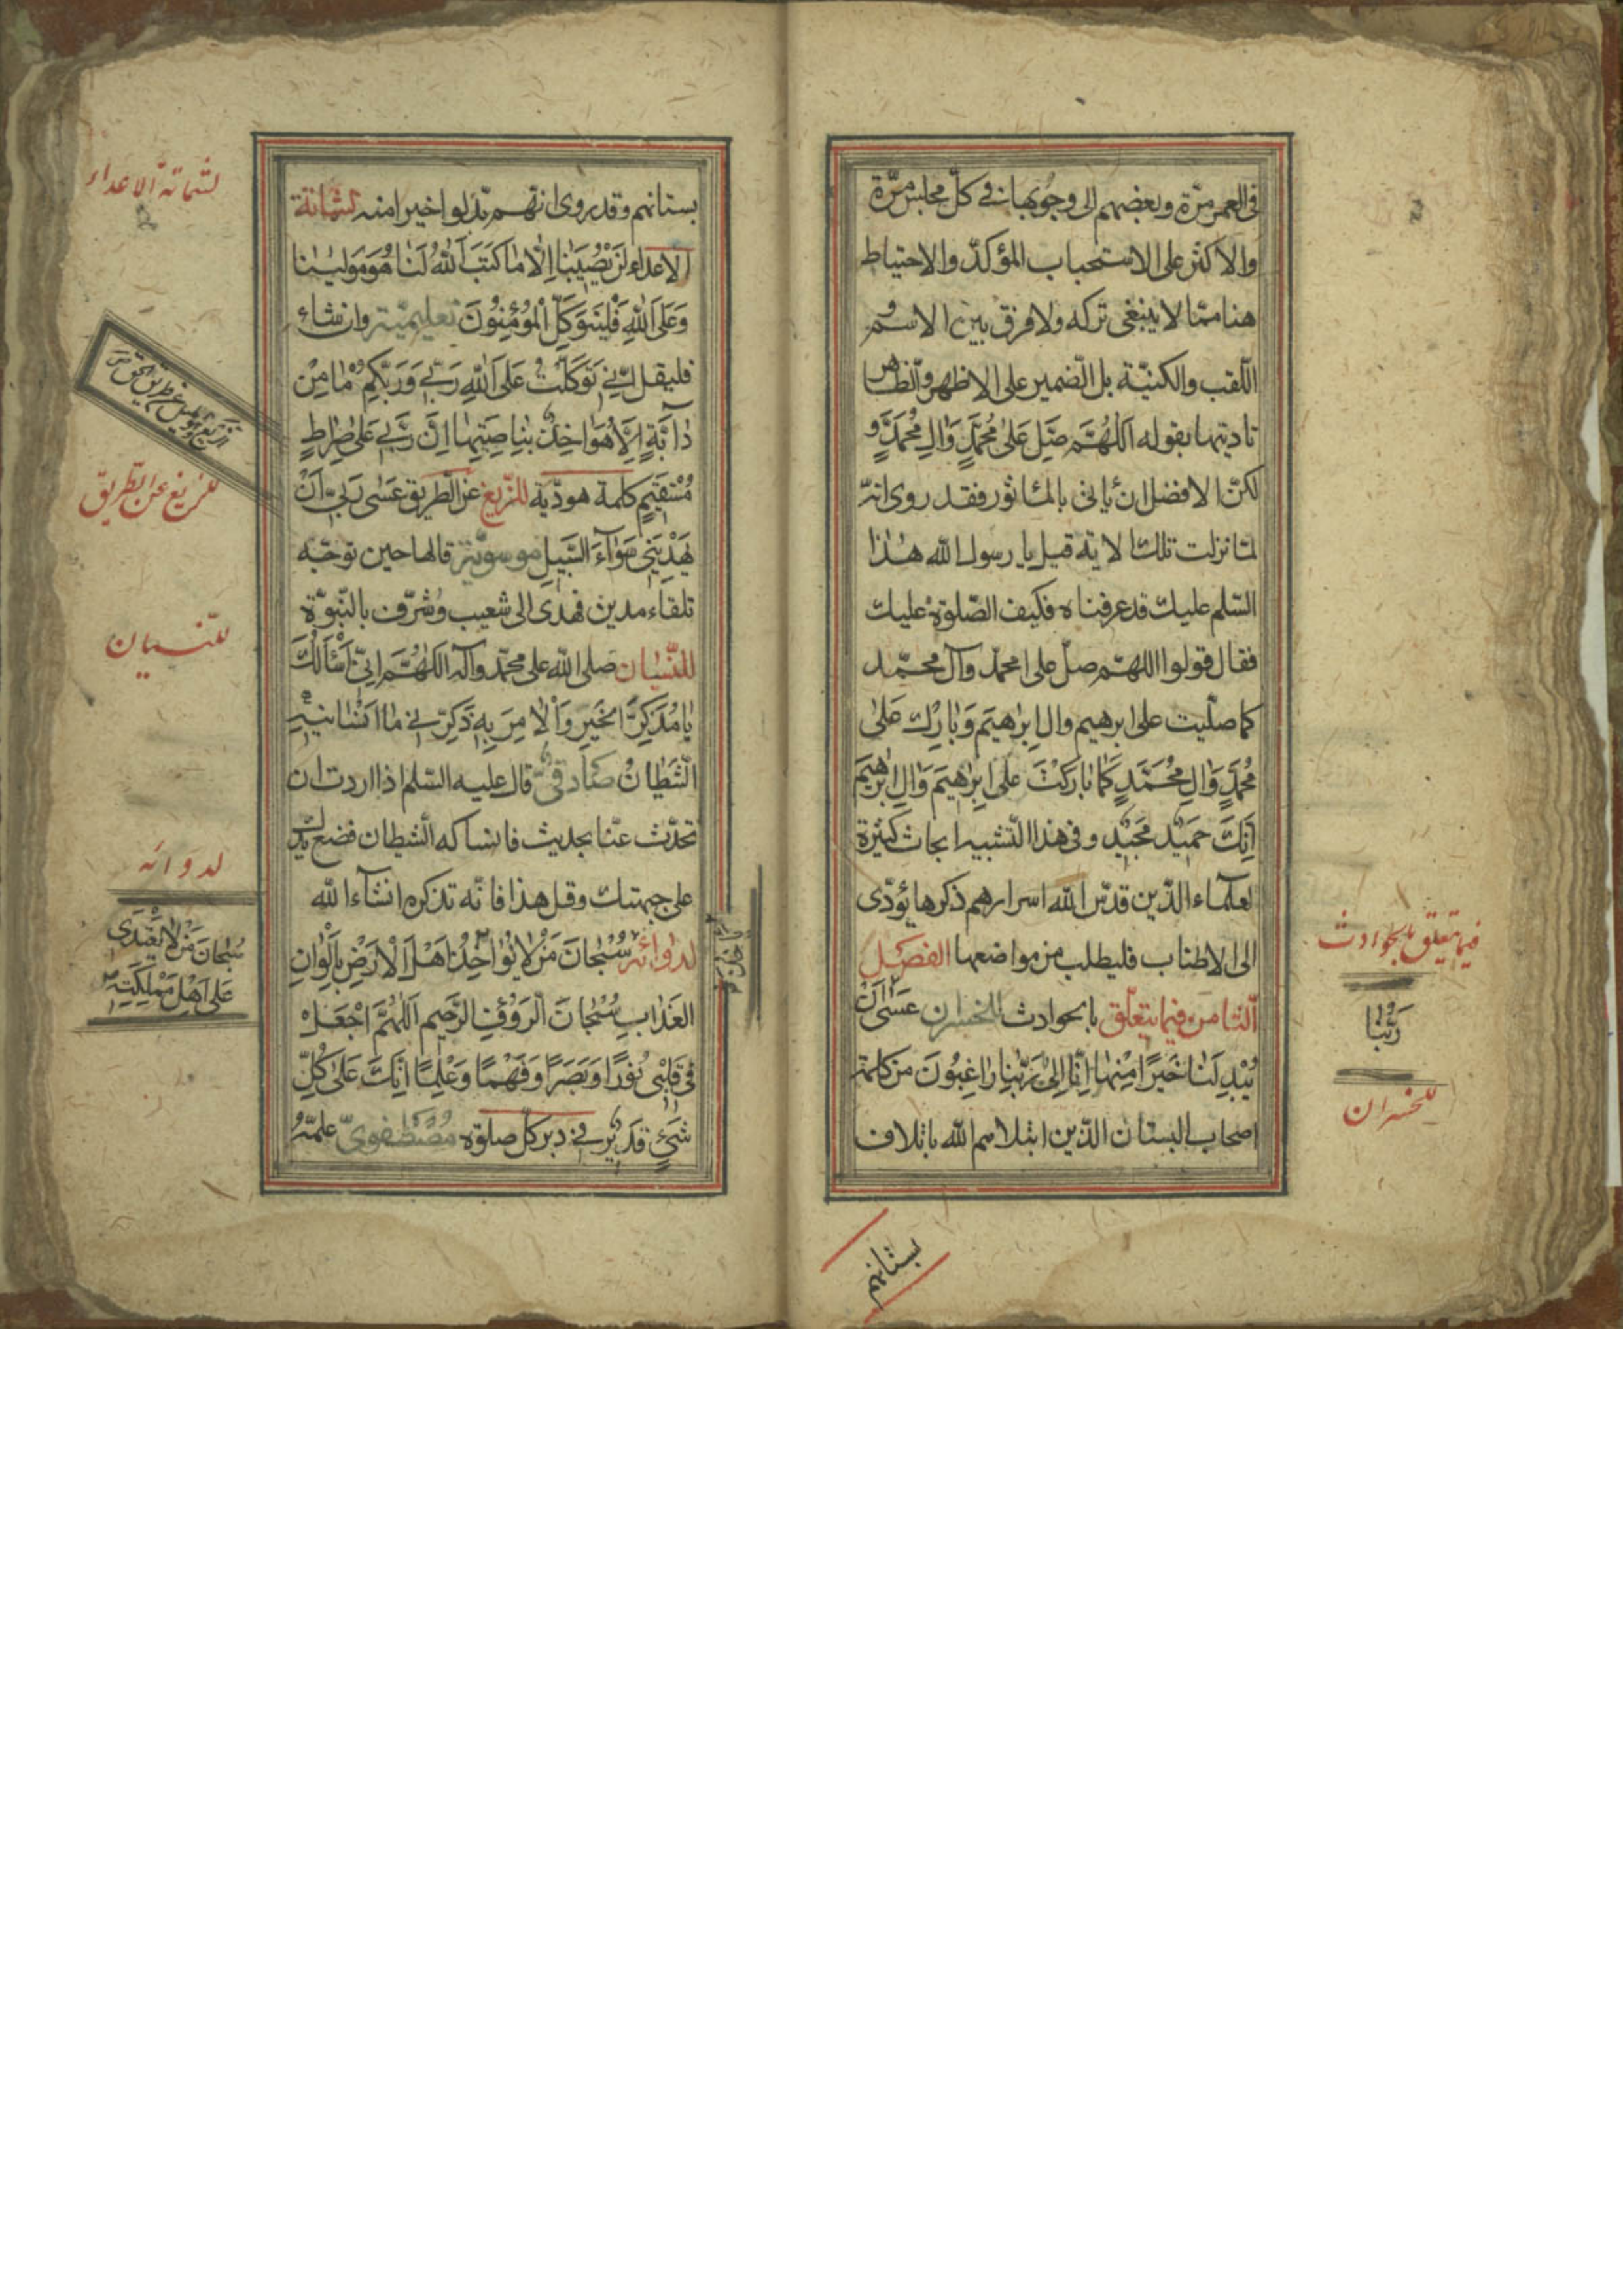 في العمر مرّة وبعضهم إلى وجوبها في كلّ مجلس مرّة
والاكثر على الاستحباب المؤكّد والاحتياط
هنا ممّا لا ينبغى تركه ولا فرق بين الاسم و
اللّقب والكنيّة بل الضمير على الاظهر والظاهر
تاديتها بقوله اَللّهُمَّ صَلِّ عَلىٰ مُحَمَّدٍ وَالِ مُحَمَّدٍ و
لكنّ الافضل ان ياتى بالماثور فقد روى انّه
لمّا نزلت تلك الاية قيل يا رسول الله هذا
السّلم عليك قد عرفناه فكيف الصّلوة عليك
فقال قولوا اللهمّ صلّ على محمّد وآل محمّد
كما صلّيت على ابرهيم وال اِبرٰهيمَ وَبارِك عَلىٰ
مُحَمَّدٍ وَالِ مُحَمَّدٍ كَمٰا بٰارَكْتَ عَلىٰ اِبرٰهيمَ وَالِ اِبرٰهيمَ
اِنَّكَ حَميدٌ مَجيدٌ وفى هذا التّشبيه ابحاث كثيرة
لعلمآء الدّين قدّس الله اسرارهم ذكرها يؤدّى
الى الاطناب فليطلب من مواضعها الفصل
الثّامن فيما يتعلّق بالحوادث للخسران عَسىٰ اَنْ
يُبْدِلَنٰا خَيرًا مِنْهٰا اِنّٰا اِلىٰ رَبِّنٰا رٰاغِبُونَ من كلمة
اصحاب البستان الّذين ابتلاهم الله باتلاف
بستانهم
فيما يتعلق بالحوادث
رَبُّنٰا
للخسران
بستانهم وقد روى انّهم بدّلوا خيرا منه لشماتة
الاعداء لَنْ يُصيبَنٰا اِلّٰا مٰا كَتَبَ اللهُ لَنٰا هُوَ مَولينٰا
وَعَلَى اللهِ فَلْيَتَوَكَّلِ الْمُؤْمِنُونَ تعليميّة وان شاء
فليقل اِنّي تَوَكَّلْتُ عَلَى اللهِ رَبّي وَرَبِّكُم مٰا مِنْ
دٰابَّةٍ اِلّٰا هُوَ اٰخِذٌ بِنٰاصِيَتِهٰا اِنَّ رَبّي عَلىٰ صِرٰاطٍ
مُسْتَقيمٍ كلمة هوديّة للزّيغ عن الطّريق عَسىٰ رَبّي اَنْ
يَهْدِيَني سَوٰآءَ السَّبيلِ موسويّة قالها حين توجّه
تلقاء مدين فهدى الى شعيب وشرّف بالنّبوّة
للنّسيان صلى الله على محمّد وآله اللّهُمَّ اِنّي اَسْأَلُكَ
يٰا مُذَكِّرَ الخَيرِ وَالْاٰمِرَ بِهِ ذَكِّرْني مٰا اَنْسٰانيهِ
الشَّيطٰانُ صادقىّ قال عليه السّلم اذا اردت ان
تحدّث عنّا بحديث فانساكه الشّيطان فضع يدك
على جبهتك وقل هذا فانّه تذكره انشآء الله
لدوائه سُبْحٰانَ مَنْ لٰا يُؤٰاخِذُ اَهْلَ الْاَرْضِ بِاَلْوٰانِ
العَذٰابِ سُبْحٰانَ الرَّؤُفِ الرَّحيمِ اَللّهُمَّ اجْعَلْ
في قَلْبى نُورًا وَبَصَرًا وَفَهْمًا وَعِلْمًا اِنَّكَ عَلىٰ كُلِّ
شَيْءٍ قَديرٌ في دبر كلّ صلوة مصطفوىّ علّمه
لشماتة الاعداء
للزيغ عن الطّريق
للنّسيان
لدوائه
سُبْحٰانَ مَنْ لٰا يَعْتَدى
عَلىٰ اَهْلِ مَمْلَكَتِهِ